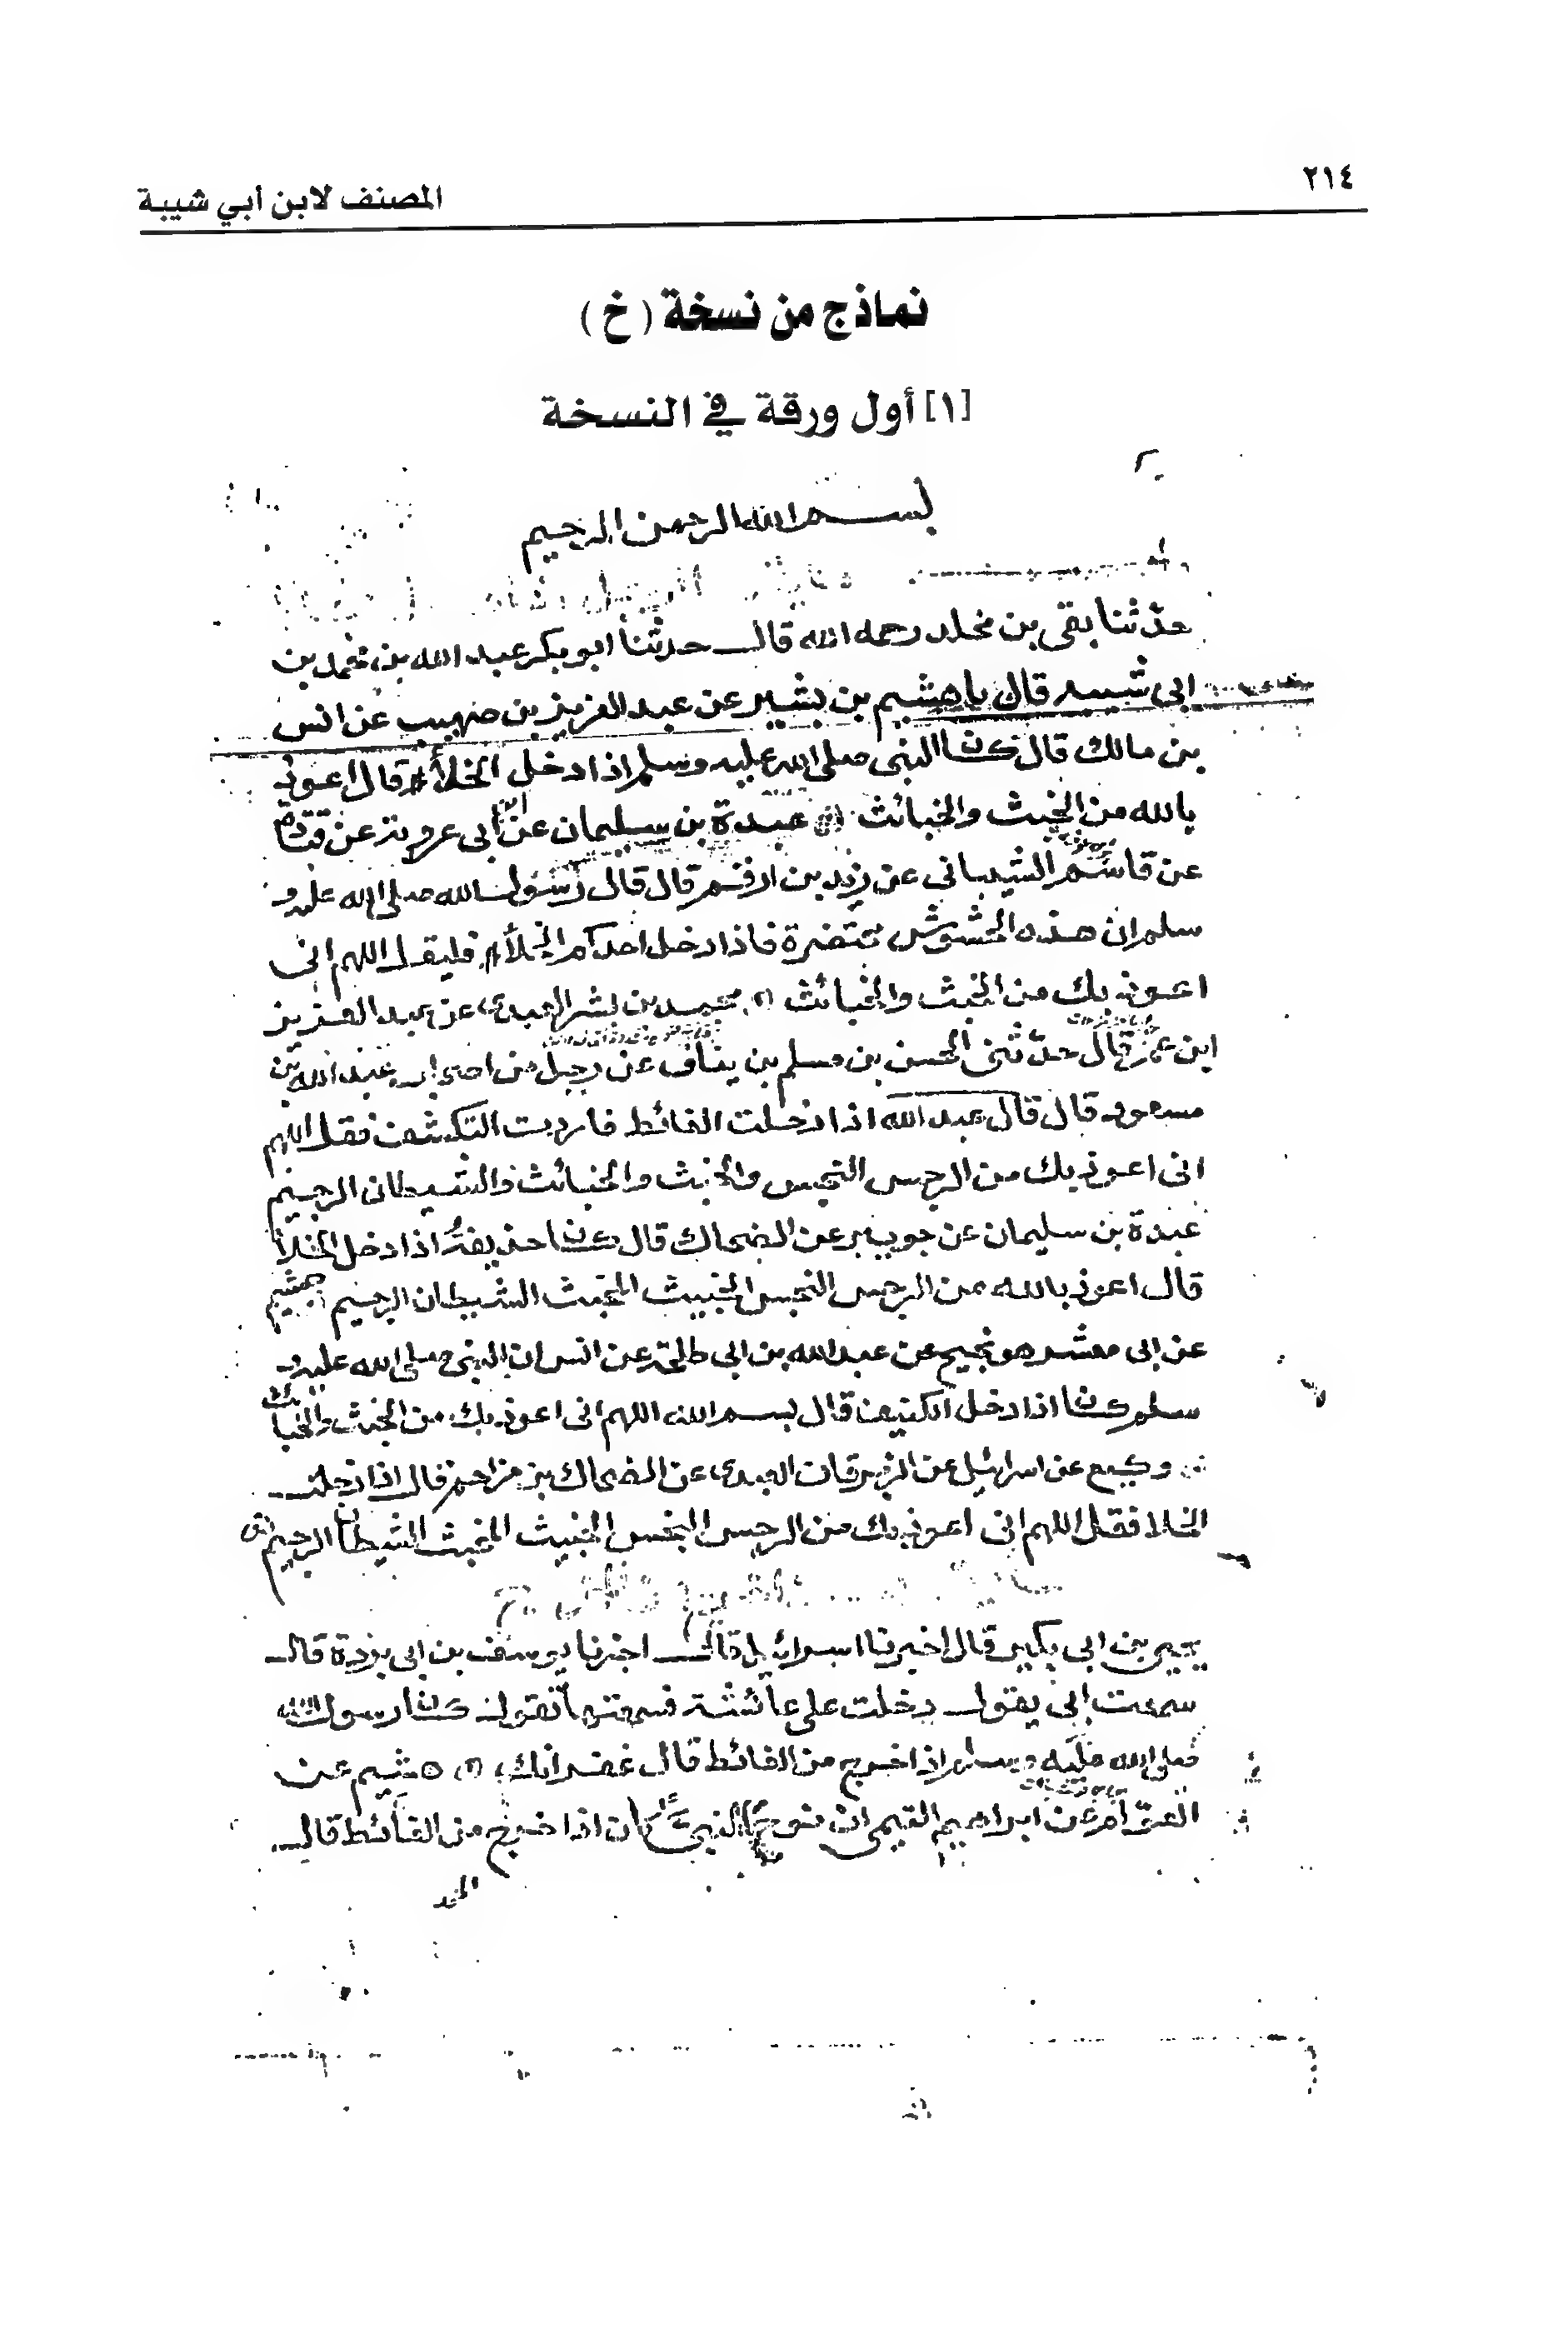 ٢١٤
المصنف لابن أبي شيبة
نماذج من نسخة (خ)
[١] أول ورقة في النسخة
بسم الله الرحمن الرحيم
حدثنا بقى بن مخلد رحمه الله قال حدثنا ابو بكر عبد الله بن محمد بن
ابى شيبه قال نا هشيم بن بشير عن عبد العزيز بن صهيب عن انس
بن مالك قال كان النبى صلى الله عليه وسلم اذا دخل الخلأ قال اعوذ
بالله من الخبث والخبائث عبدة بن سليمان عن ابن ابى عروبة عن قتادة
عن قاسم الشيبانى عن زيد بن ارقم قال قال رسول الله صلى الله عليه و
سلم ان هذه الحشوش محتضرة فاذا دخل احدكم الخلأ فليقل اللهم انى
اعوذ بك من الخبث والخبائث محمد بن بشر العبدى عن عبد العزيز
ابن عمر قال حدثنى الحسن بن مسلم بن يناق عن رجل من اصحاب عبد الله بن
مسعود قال قال عبد الله اذا دخلت الغائط فاردت التكشف فقل اللهم
انى اعوذ بك من الرجس النجس والخبث والخبائث والشيطان الرجيم
عبدة بن سليمان عن جويبر عن الضحاك قال كان حذيفة اذا دخل الخلأ
قال اعوذ بالله من الرجس النجس الخبيث المخبث الشيطان الرجيم هشيم
عن ابى معشر هو نجيح عن عبد الله بن ابى طلحة عن انس ان النبى صلى الله عليه و
سلم كان اذا دخل الكنيف قال بسم الله اللهم انى اعوذ بك من الخبث والخبائث
وكيع عن اسرائيل عن الزبرقان العبدى عن الضحاك بن مزاحم قال اذا دخلت
الخلا فقل اللهم انى اعوذ بك من الرجس النجس الخبيث المخبث الشيطان الرجيم
يحيى بن ابى بكير قال اخبرنا اسرائيل قال اخبرنا يوسف بن ابى بردة قال
سمعت ابى يقول دخلت على عائشة فسمعتها تقول كان رسول الله
صلى الله عليه وسلم اذا خرج من الغائط قال غفرانك هشيم عن
العوام عن ابراهيم التيمى ان نوح النبى كان اذا خرج من الغائط قال
الحمد